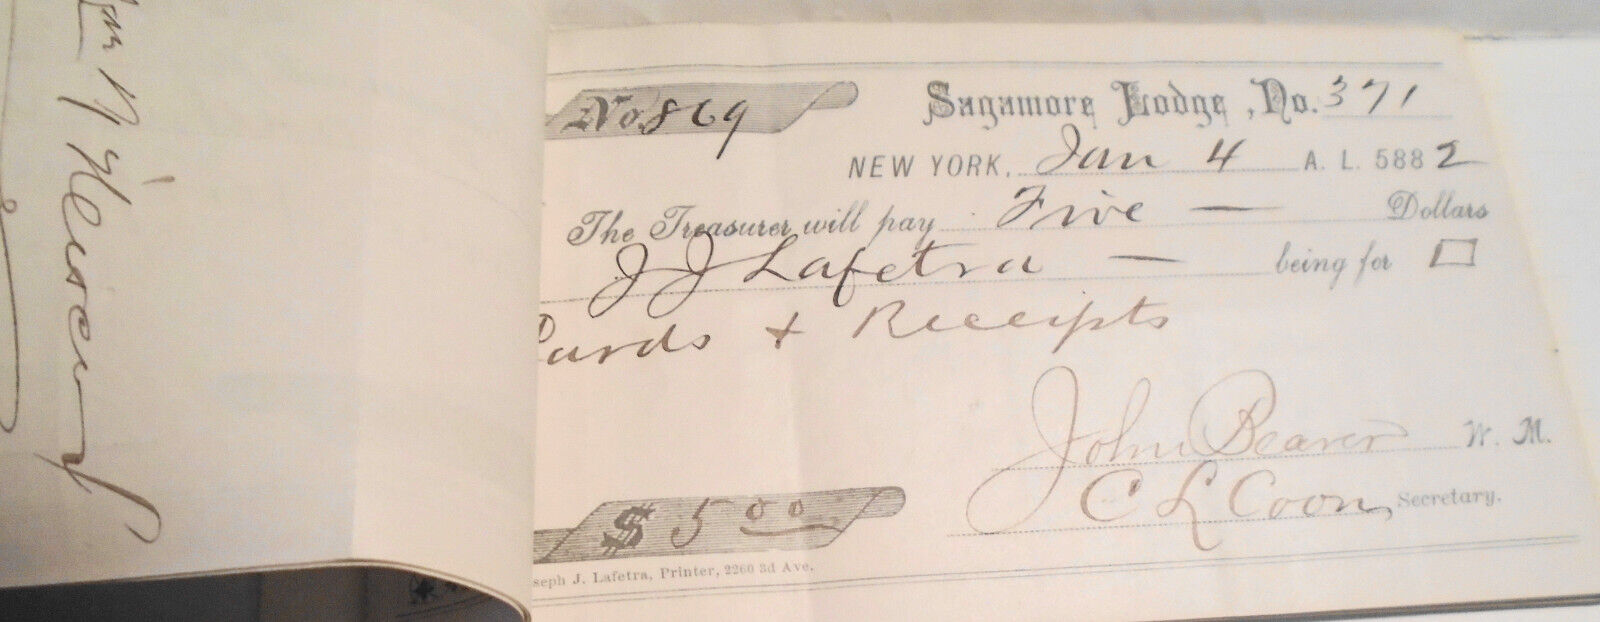 No. 869
Sagamore Lodge, No. 371
NEW YORK, Jan 4 A. L. 5882
The Treasurer will pay Five — Dollars
J J Lafetra — being for
Cards + Receipts
John Beaver W. M.
C L Coon, Secretary.
$ 5 00
seph J. Lafetra, Printer, 2260 3d Ave.